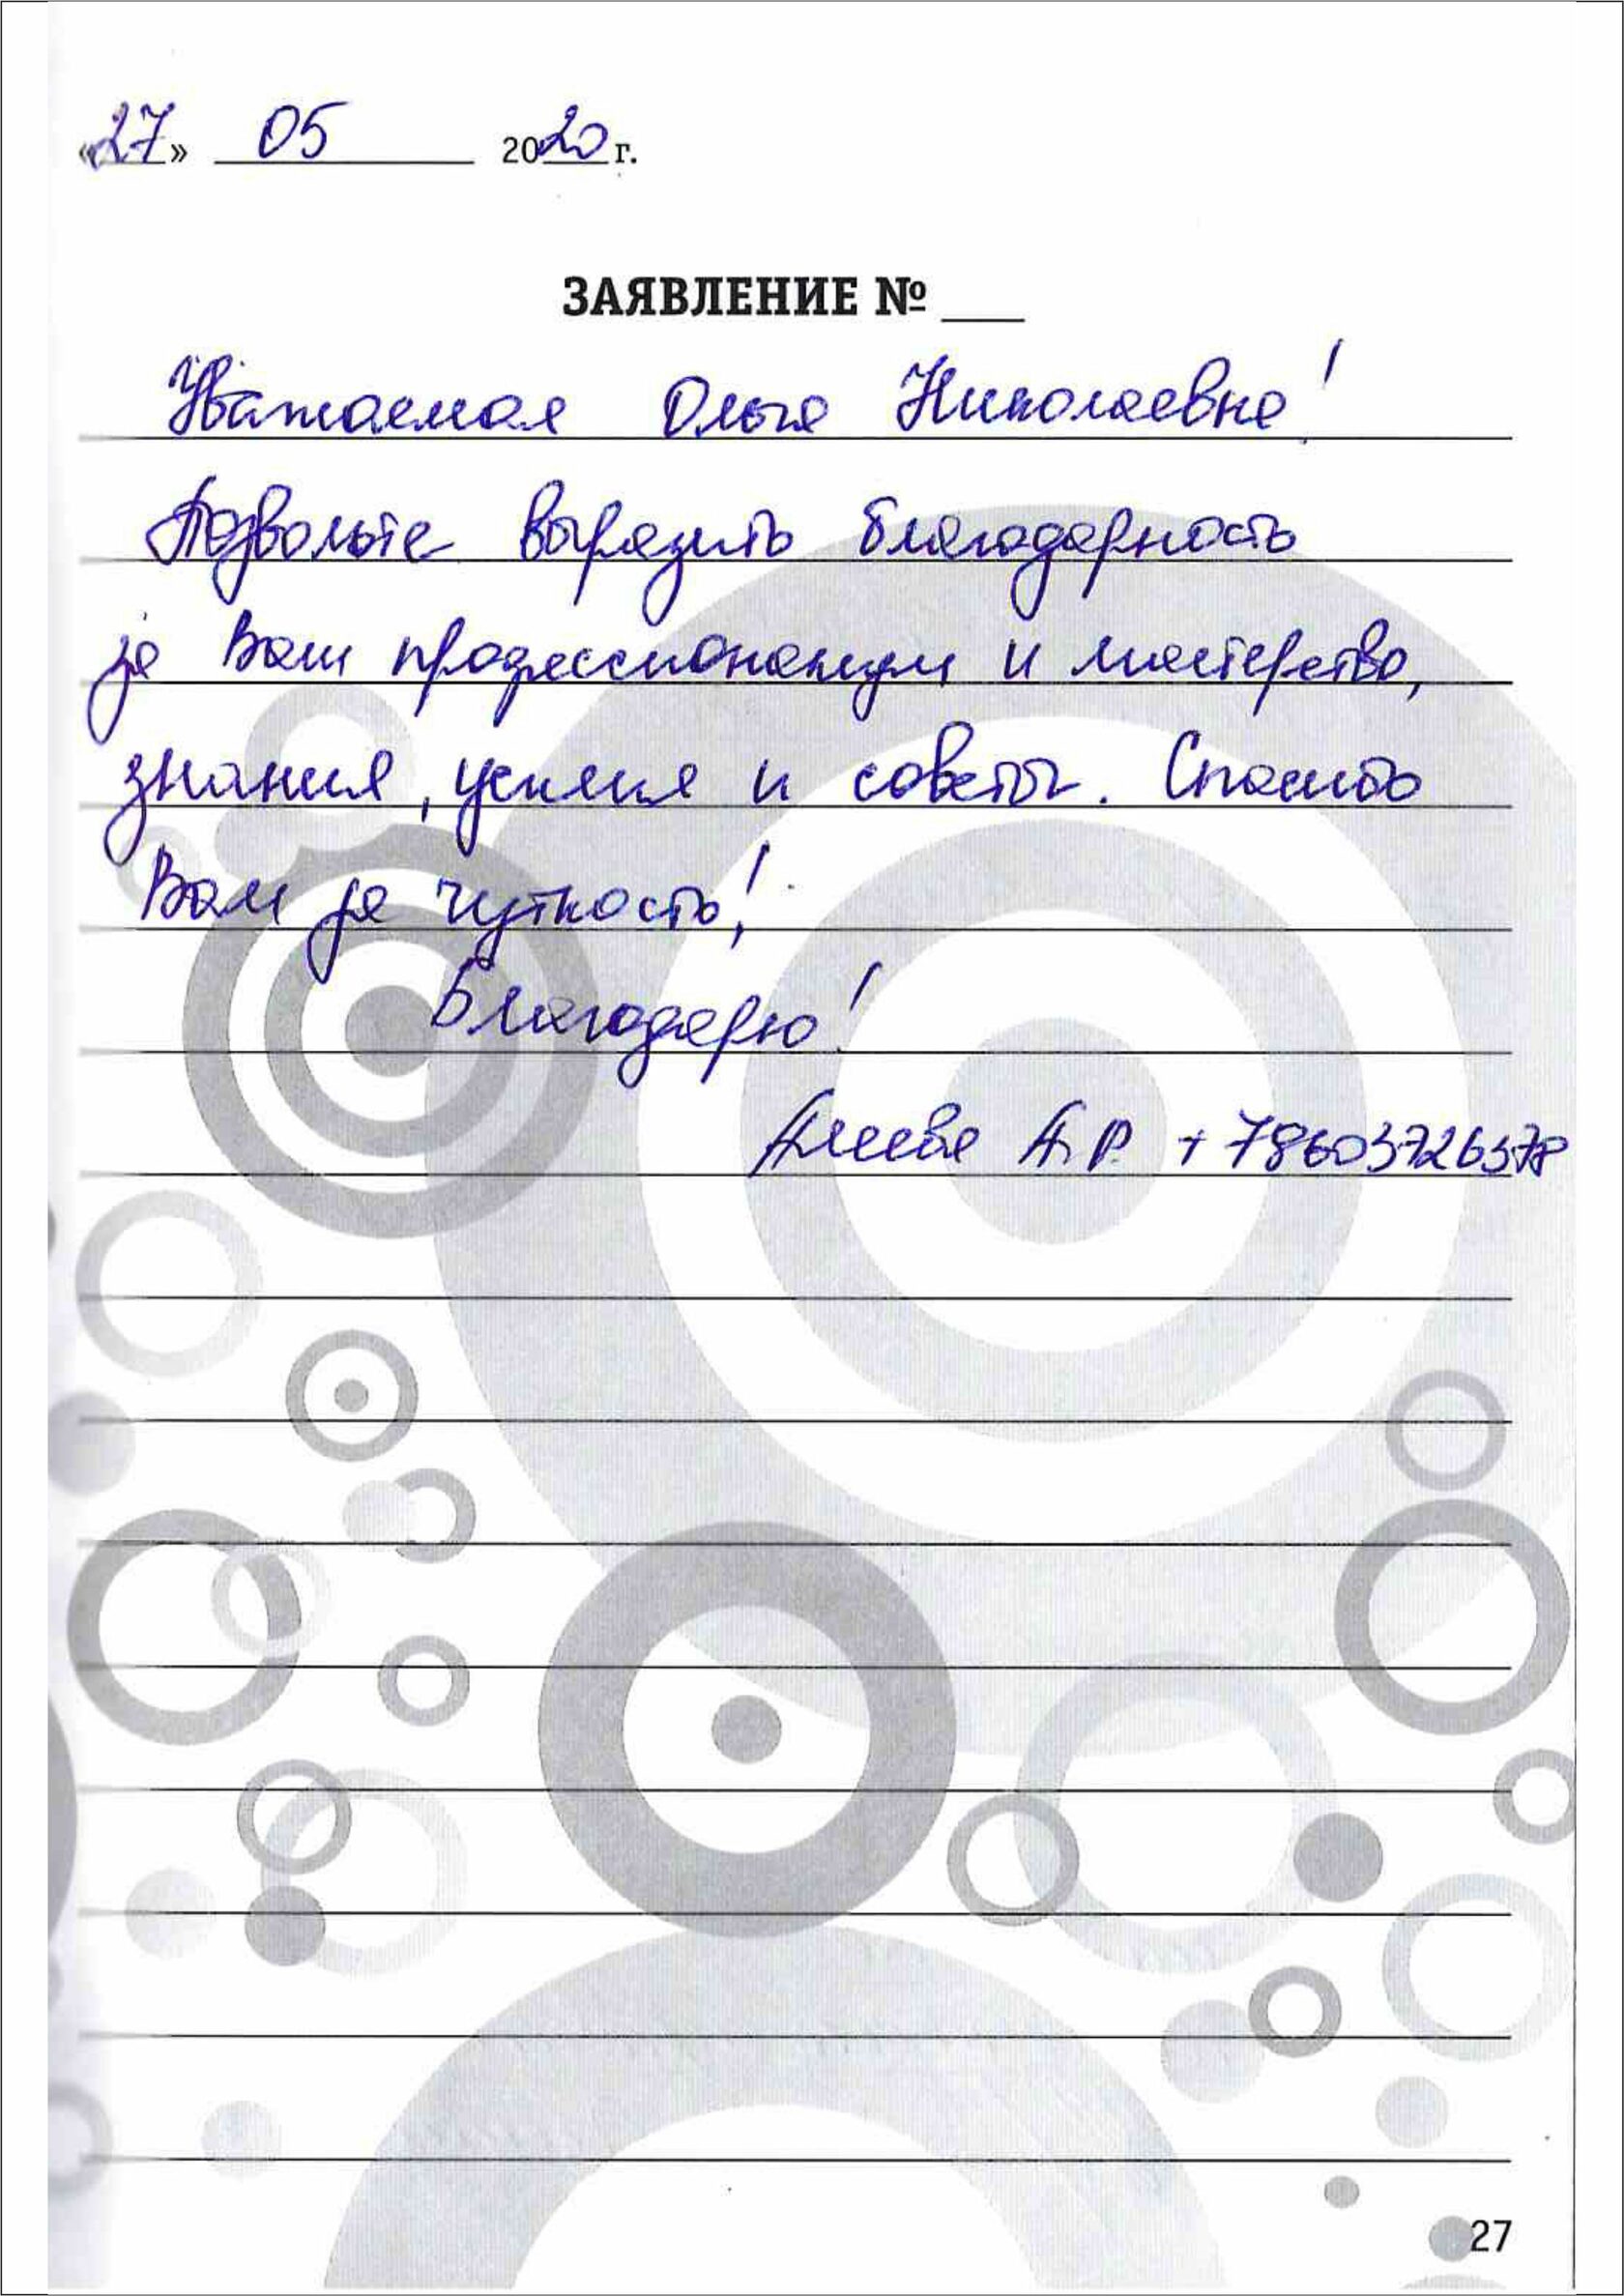 «27» 05 2020 г.
ЗАЯВЛЕНИЕ № ___
Уважаемая Ольга Николаевна!
Позвольте выразить благодарность
за Ваш профессионализм и мастерство,
знания, усилия и советы. Спасибо
Вам за чуткость!
Благодарю!
А.Р. +78603726378
27